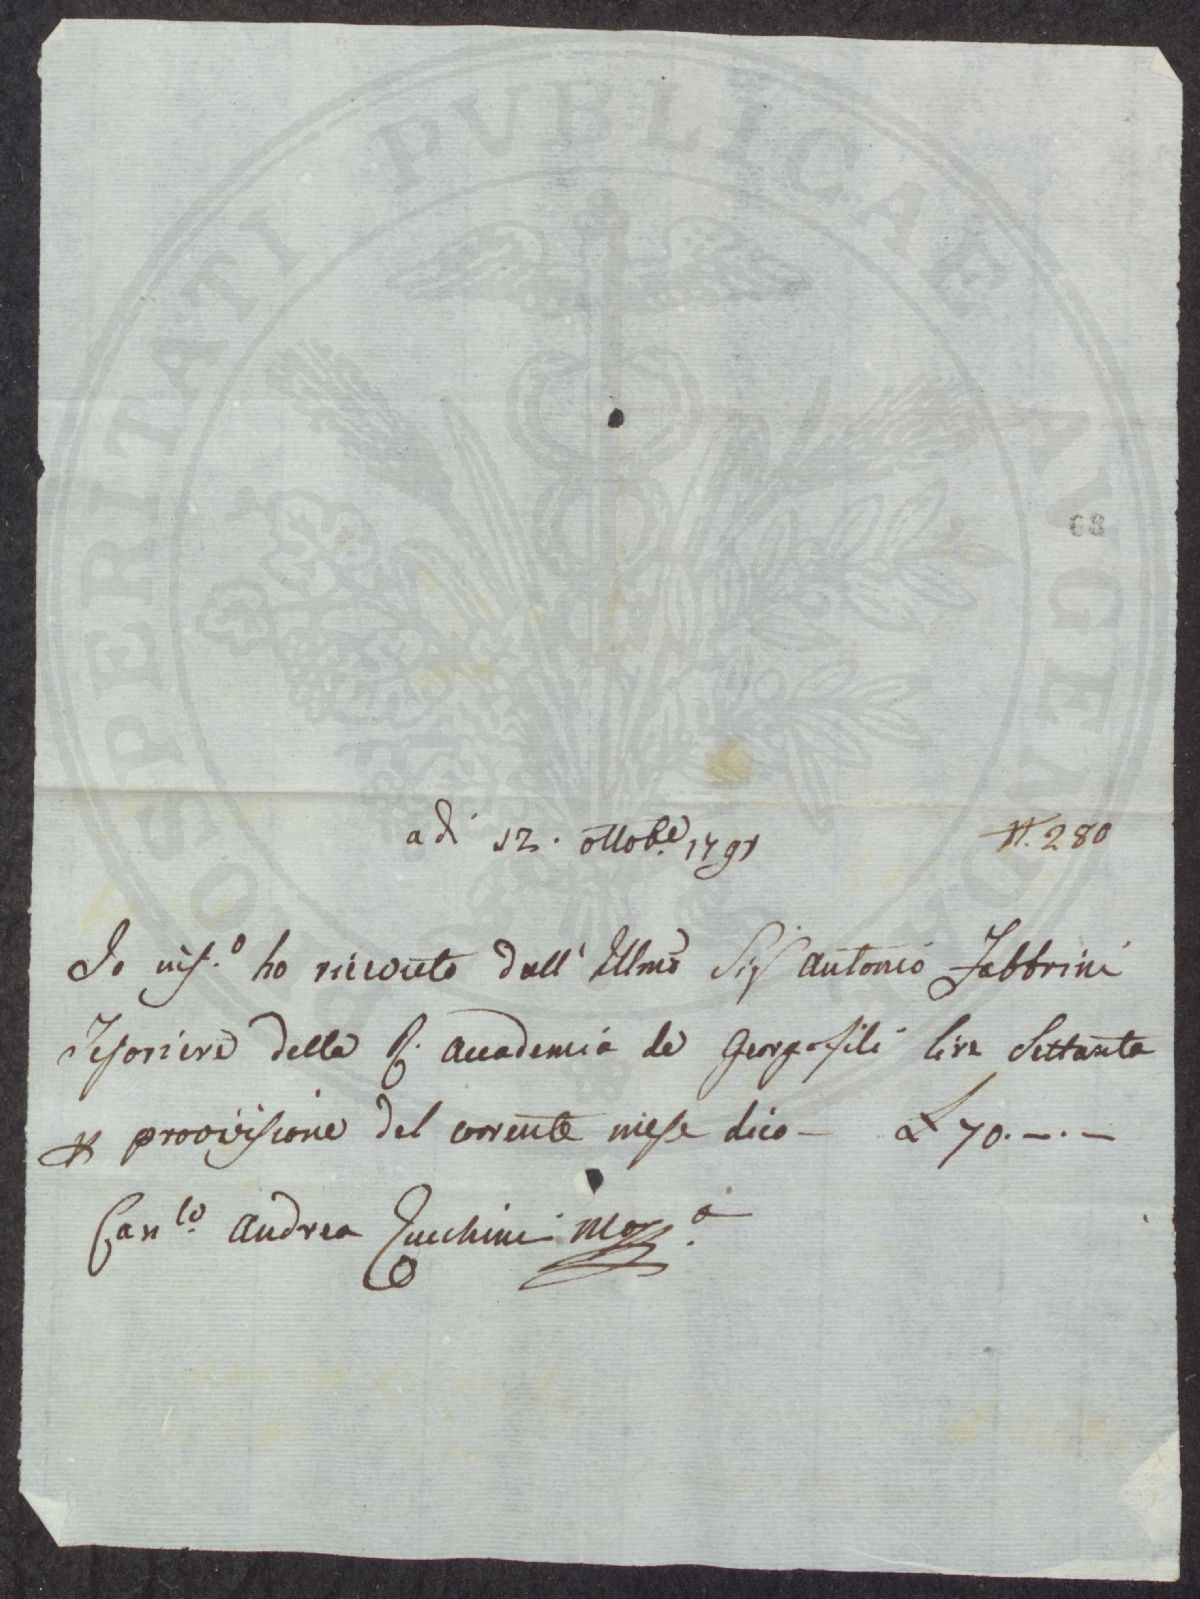 PROSPERITATI PUBLICAE AUGENDAE
68
a dì 12. ottobe 1791
N. 280
Io info. ho ricevuto dall' Illmo Sigr Antonio Fabbrini
Tesoriere della R. Accademia de Georgofili lire Settanta
p provvisione del corrente mese dico — £ 70.—.—
Canco. Andrea Zucchini Mo. pa.